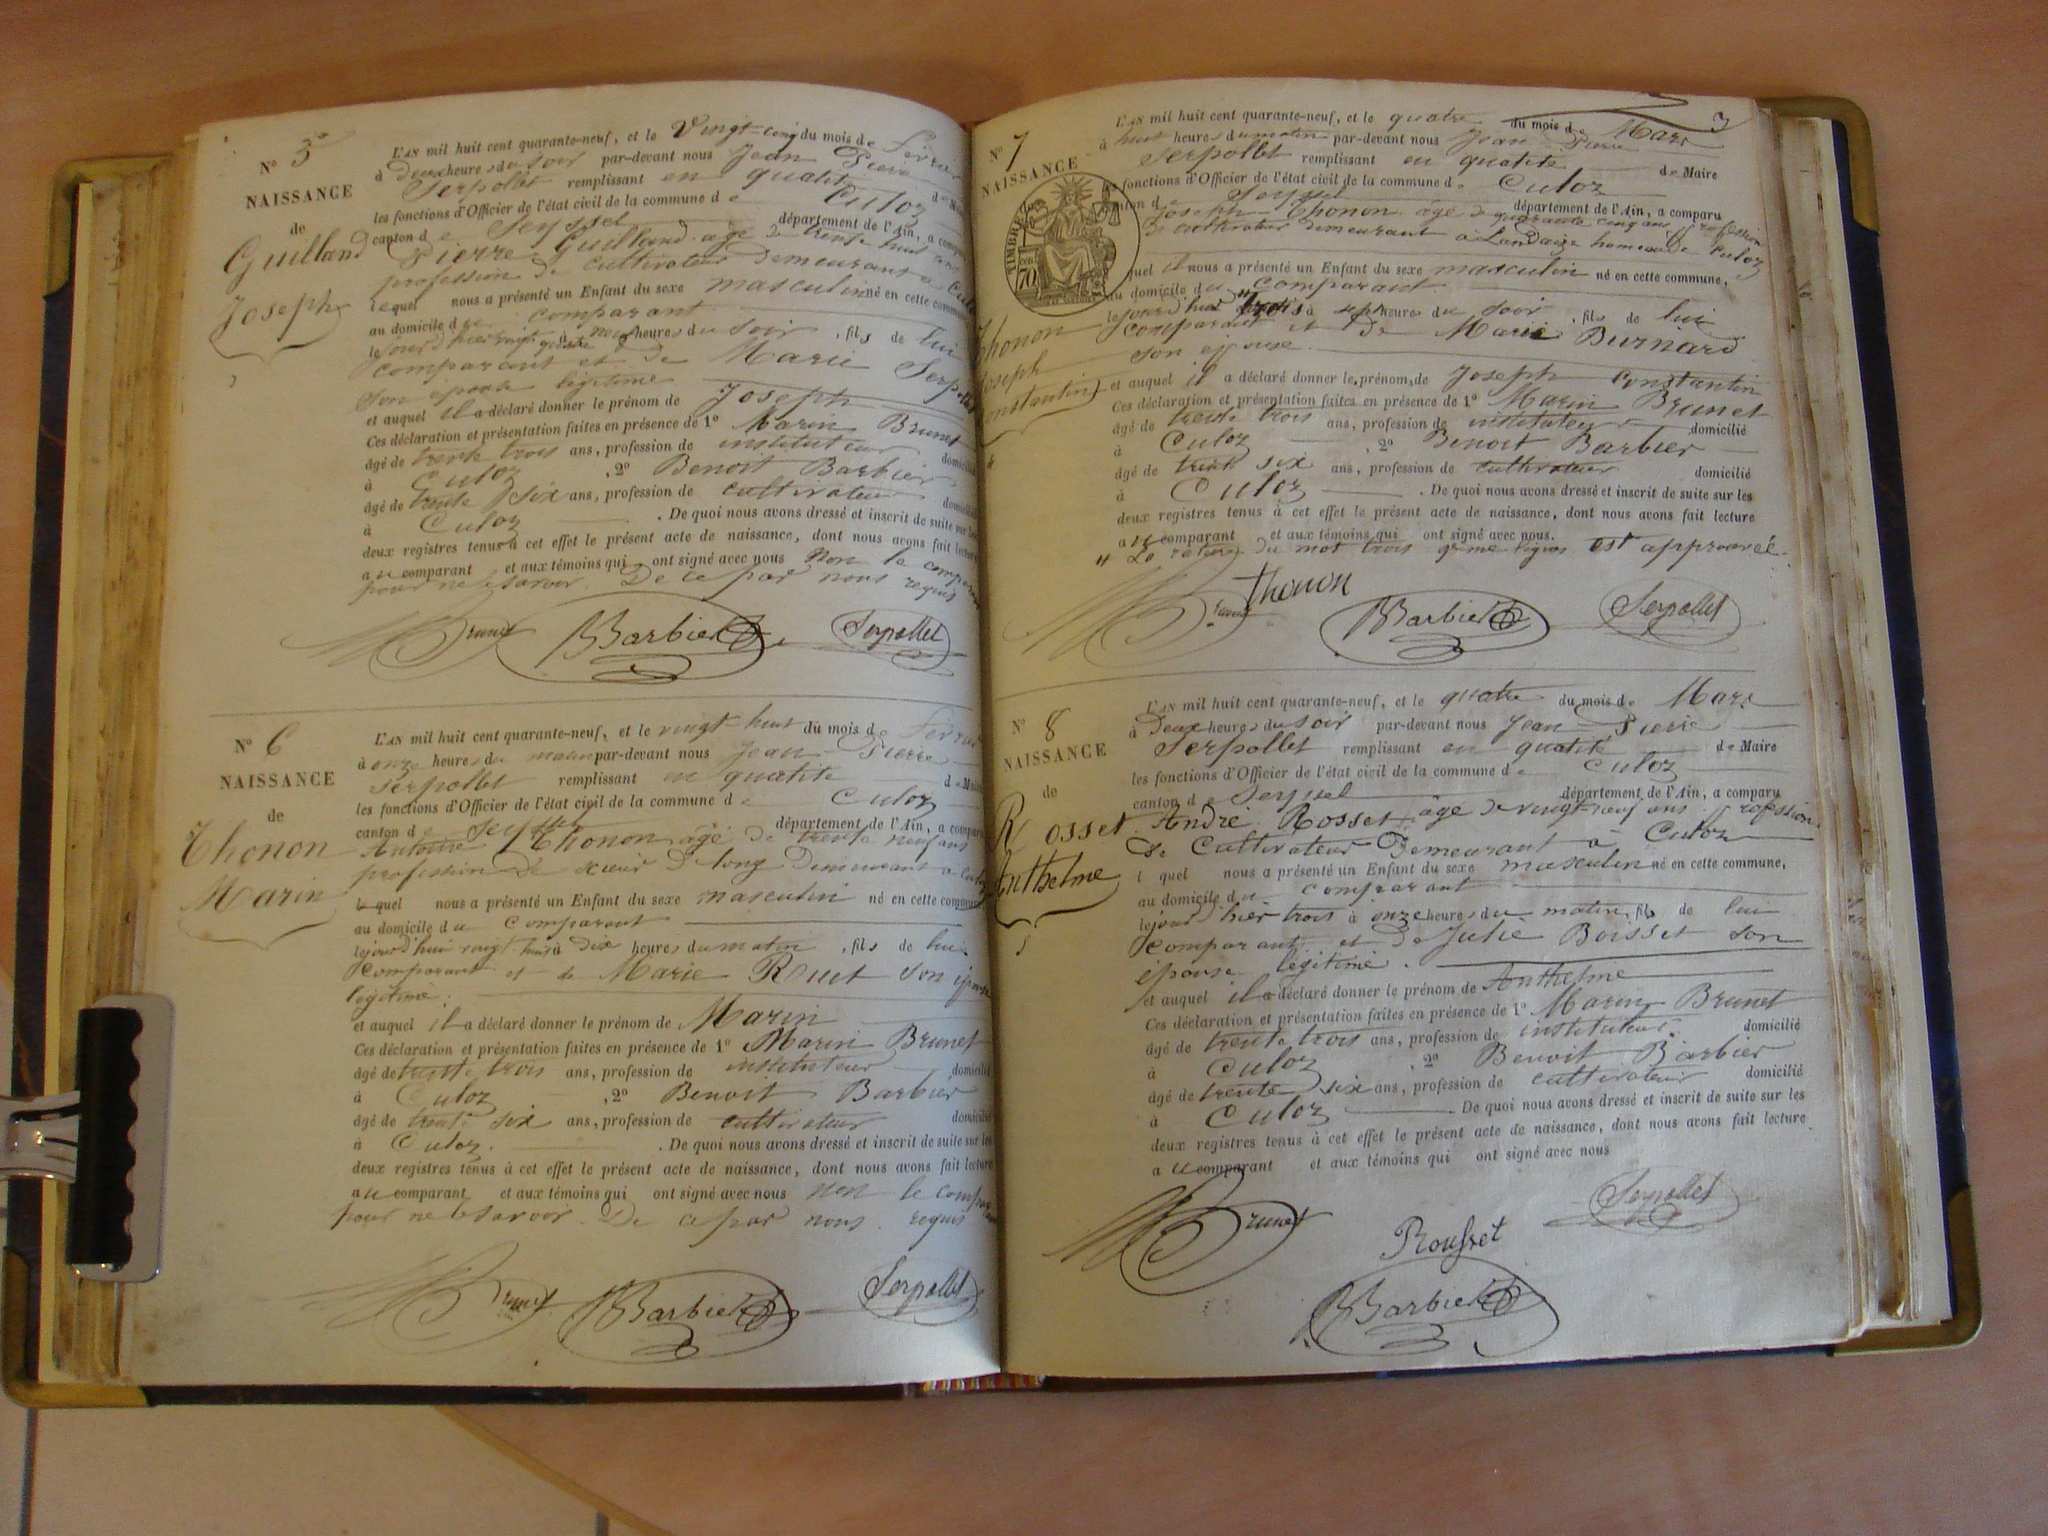 N° 5
NAISSANCE
de
Guilland
Joseph
L'AN mil huit cent quarante-neuf, et le Vingt-cinq du mois de Février
à Deux heures du soir par-devant nous Jean Pierre
Serpollet remplissant en qualité de Maire
les fonctions d'Officier de l'état civil de la commune de Culoz
canton de Seyssel département de l'Ain, a comparu
Pierre Guilland âgé de trente huit ans
profession de cultivateur demeurant à Culoz
lequel nous a présenté un Enfant du sexe masculin né en cette commune
au domicile du comparant
le jour d'hier vingt quatre à heures du soir, fils de lui
comparant et de Marie Serpollet
son épouse légitime
et auquel il a déclaré donner le prénom de Joseph
Ces déclaration et présentation faites en présence de 1° Marin Brunet
âgé de trente trois ans, profession de instituteur domicilié
à Culoz, 2° Benoit Barbier
âgé de trente six ans, profession de cultivateur domicilié
à Culoz. De quoi nous avons dressé et inscrit de suite sur les
deux registres tenus à cet effet le présent acte de naissance, dont nous avons fait lecture
au comparant et aux témoins qui ont signé avec nous non le comparant
pour ne le savoir. De ce par nous requis
Brunet BBarbier Serpollet
N° 6
NAISSANCE
de
Thonon
Marin
L'AN mil huit cent quarante-neuf, et le vingt huit du mois de Février
à onze heures du matin par-devant nous Jean Pierre
Serpollet remplissant en qualité de Maire
les fonctions d'Officier de l'état civil de la commune de Culoz
canton de Seyssel département de l'Ain, a comparu
Antoine Thonon âgé de trente neuf ans
profession de scieur d long demeurant à Culoz
lequel nous a présenté un Enfant du sexe masculin né en cette commune
au domicile du comparant
le jourd'hui vingt huit à dix heures du matin, fils de lui
comparant et de Marie Ruet son épouse
légitime
et auquel il a déclaré donner le prénom de Marin
Ces déclaration et présentation faites en présence de 1° Marin Brunet
âgé de trente trois ans, profession de instituteur domicilié
à Culoz, 2° Benoit Barbier
âgé de trente six ans, profession de cultivateur domicilié
à Culoz. De quoi nous avons dressé et inscrit de suite sur les
deux registres tenus à cet effet le présent acte de naissance, dont nous avons fait lecture
au comparant et aux témoins qui ont signé avec nous non le comparant
pour ne le savoir. De ce par nous requis
Brunet BBarbier Serpollet
3
N° 7
NAISSANCE
TIMBRE
70
Thonon
Joseph
Constantin
L'AN mil huit cent quarante-neuf, et le quatre du mois de Mars
à huit heures du matin par-devant nous Jean Pierre
Serpollet remplissant en qualité de Maire
les fonctions d'Officier de l'état civil de la commune de Culoz
canton de Seyssel département de l'Ain, a comparu
Joseph Thonon âgé de quarante cinq ans profession
de cultivateur demeurant à Landaize hameau de Culoz
quel il nous a présenté un Enfant du sexe masculin né en cette commune,
au domicile du comparant
le jour d'hier trois à sept heures du soir, fils de lui
comparant et de Marie Burnard
son épouse
et auquel il a déclaré donner le prénom de Joseph Constantin
Ces déclaration et présentation faites en présence de 1° Marin Brunet
âgé de trente trois ans, profession de instituteur domicilié
à Culoz. 2° Benoit Barbier
âgé de trente six ans, profession de cultivateur domicilié
à Culoz. De quoi nous avons dressé et inscrit de suite sur les
deux registres tenus à cet effet le présent acte de naissance, dont nous avons fait lecture
au comparant et aux témoins qui ont signé avec nous.
" La du mot trois ligne est approuvée
Brunet Thonon BBarbier Serpollet
N° 8
NAISSANCE
de
Rosset
Anthelme
L'AN mil huit cent quarante-neuf, et le quatre du mois de Mars
à Deux heures du soir par-devant nous Jean Pierre
Serpollet remplissant en qualité de Maire
les fonctions d'Officier de l'état civil de la commune de Culoz
canton de Seyssel département de l'Ain, a comparu
André Rosset âgé de vingt-neuf ans profession
de Cultivateur Demeurant à Culoz
l quel nous a présenté un Enfant du sexe masculin né en cette commune,
au domicile du comparant
le jour d'hier trois à onze heures du matin, fils de lui
comparant et de Julie Boisset son
épouse légitime.
et auquel il a déclaré donner le prénom de Anthelme
Ces déclaration et présentation faites en présence de 1° Marin Brunet
âgé de trente trois ans, profession de instituteur. domicilié
à Culoz, 2° Benoit Barbier
âgé de trente six ans, profession de cultivateur domicilié
à Culoz. De quoi nous avons dressé et inscrit de suite sur les
deux registres tenus à cet effet le présent acte de naissance, dont nous avons fait lecture
au comparant et aux témoins qui ont signé avec nous
Serpollet
Brunet
Rousset
BBarbier